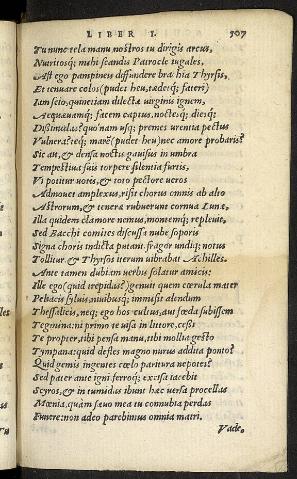 LIBER I. 307
Tu nunc tela manu nostros tu dirigis arcus,
Nutritosq; mihi scandis Patrocle iugales,
Ast ego pampineis diffundere brachia Thyrsis,
Et tenuare colos (pudet heu, tædetq; fateri)
Iam scio, quinetiam dilectæ uirginis ignem,
Aequæuamq; facem captus, noctesq; diesq;
Dissimulas? quo nam usq; premes urentia pectus
Vulnera? teq; marē (pudet heu) nec amore probaris?
Sic ait, & densa noctis gauisus in umbra
Tempestiua suis torpere silentia furtis,
Vi potitur uotis, & toto pectore ueros
Admouet amplexus, risit chorus omnis ab alto
Astrorum, & teneræ rubuerunt cornua Lunæ,
Illa quidem clamore nemus, montemq; repleuit,
Sed Bacchi comites discussa nube soporis
Signa choris indicta putant. fragor undiq; notus
Tollitur, & Thyrsos iterum uibrabat Achilles.
Ante tamen dubiam uerbis solatur amicis:
Ille ego (quid trepidas?) genuit quem cœrula mater
Peliacis syluis, niuibusq; immisit alendum
Thessalicis, neq; ego hos cultus, aut fœda subissem
Tegmina: ni primo te uisa in littore, cessi
Te propter, tibi pensa manu, tibi mollia gesto
Tympana: quid defles magno nurus addita ponto?
Quid gemis ingentes cœlo paritura nepotes?
Sed pater ante igni ferroq; excisa iacebit
Scyros, & in tumidas ibunt hæc uersa procellas
Mœnia, quàm sæuo mea tu connubia perdas
Funere: non adeo parebimus omnia matri.
Vade,